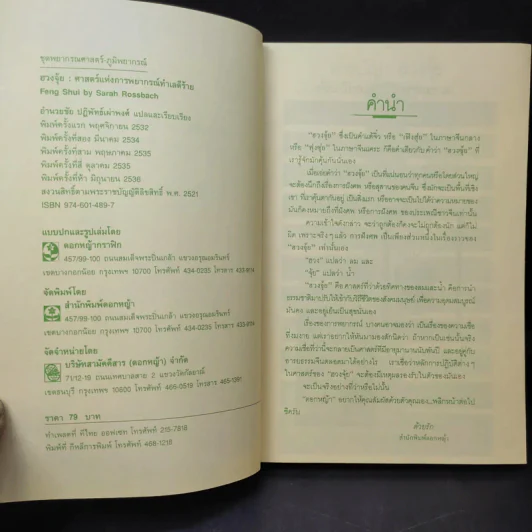 ชุดพยากรณศาสตร์-ภูมิพยากรณ์
ฮวงจุ้ย : ศาสตร์แห่งการพยากรณ์ทำเลดีร้าย
Feng Shui by Sarah Rossbach
อำนวยชัย ปฏิพัทธ์เผ่าพงศ์ แปลและเรียบเรียง
พิมพ์ครั้งแรก พฤศจิกายน 2532
พิมพ์ครั้งที่สอง มีนาคม 2534
พิมพ์ครั้งที่สาม พฤษภาคม 2535
พิมพ์ครั้งที่สี่ ตุลาคม 2535
พิมพ์ครั้งที่ห้า มิถุนายน 2536
สงวนลิขสิทธิ์ตามพระราชบัญญัติลิขสิทธิ์ พ.ศ. 2521
ISBN 974-601-489-7
แบบปกและรูปเล่มโดย
ดอกหญ้ากราฟิก
457/99-100 ถนนสมเด็จพระปิ่นเกล้า แขวงอรุณอมรินทร์
เขตบางกอกน้อย กรุงเทพฯ 10700 โทรศัพท์ 434-0235 โทรสาร
จัดพิมพ์โดย
สำนักพิมพ์ดอกหญ้า
457/99-100 ถนนสมเด็จพระปิ่นเกล้า แขวงอรุณอมรินทร์
เขตบางกอกน้อย กรุงเทพฯ 10700 โทรศัพท์ 434-0235 โทรสาร
จัดจำหน่ายโดย
บริษัทสามัคคีสาร (ดอกหญ้า) จำกัด
71/12-19 ถนนเทศบาลสาย 2 แขวงวัดกัลยาณ์
เขตธนบุรี กรุงเทพฯ 10600 โทรศัพท์ 466-0519 โทรสาร
ราคา 79 บาท
ทำเพลตที่ ดีไทย ออฟเซท โทรศัพท์ 215-7818
พิมพ์ที่ กิจลีการพิมพ์ โทรศัพท์ 468-1218
คำนำ
"ฮวงจุ้ย" ซึ่งเป็นคำแต้จิ๋ว หรือ "เฟิงสุ่ย" ในภาษาจีนกลาง
หรือ "ฟุ่งสุ่ย" ในภาษาจีนแคะ ก็คือคำเดียวกับ คำว่า "ฮวงจุ้ย" ที่
เรารู้จักมักคุ้นกันนั่นเอง
เมื่อเอ่ยคำว่า "ฮวงจุ้ย" เป็นที่แน่นอนว่าทุกคนหรือโดยส่วนใหญ่
จะต้องนึกถึงเรื่องการฝังศพ หรือสุสานของคนจีน ซึ่งมักจะเป็นพื้นที่เชิง
เขา
มันก็คงหมายถึงที่ฝังศพ หรือการฝังศพ ของประเพณีชาวจีนเท่านั้น
ความเข้าใจดังกล่าว จะว่าถูกต้องก็คงจะไม่ถูกต้องนัก แต่ก็ไม่
ผิด เพราะจริงๆ แล้ว การฝังศพ เป็นเพียงส่วนหนึ่งในเรื่องราวของ
"ฮวงจุ้ย" เท่านั้นเอง
"ฮวง" แปลว่า ลม และ
"จุ้ย" แปลว่า น้ำ
"ฮวงจุ้ย" คือ ศาสตร์ที่ว่าด้วยทิศทางของลมและน้ำ คือการนำ
ธรรมชาติมาปรับให้เข้ากับวิถีชีวิตของสังคมมนุษย์ เพื่อความอุดมสมบูรณ์
มั่นคง และอยู่เย็นเป็นสุขนั่นเอง
เรื่องของการพยากรณ์ บางคนอาจมองว่า เป็นเรื่องของความเชื่อ
ที่งมงาย แต่เราอยากให้หันมามองสักนิดว่า ถ้าหากเป็นเช่นนั้นจริง
ในศาสตร์ของ "ฮวงจุ้ย" จะต้องมีเหตุผลรองรับในตัวของมันเอง
จะเป็นจริงอย่างที่ว่าหรือไม่นั้น
"ดอกหญ้า" อยากให้คุณสัมผัสด้วยตัวคุณเอง...พลิกหน้าต่อไป
ซิครับ
ด้วยรัก
สำนักพิมพ์ดอกหญ้า